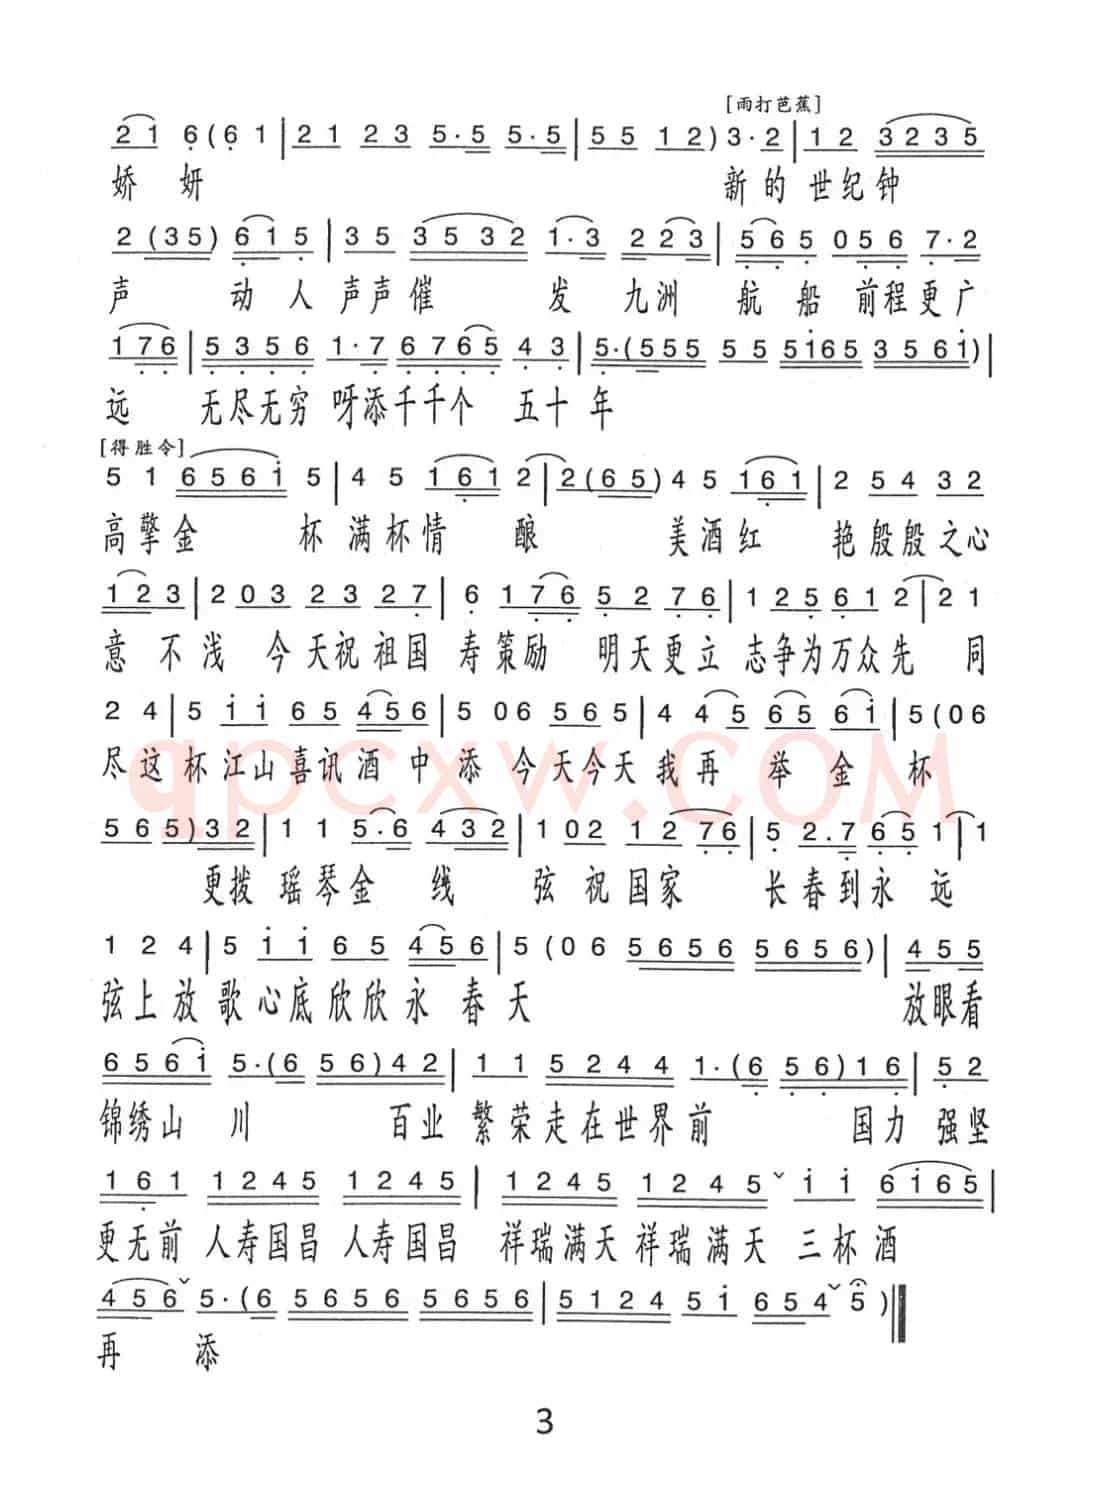 [雨打芭蕉]
2 1 6 (6 1 | 2 1 2 3 5·5 5·5 | 5 5 1 2) 3·2 | 1 2 3 2 3 5
娇 妍 新 的 世 纪 钟
2 (3 5) 6 1 5 | 3 5 3 5 3 2 1·3 2 2 3 | 5 6 5 0 5 6 7·2
声 动 人 声 声 催 发 九 洲 航 船 前 程 更 广
1 7 6 | 5 3 5 6 1·7 6 7 6 5 4 3 | 5·(5 5 5 5 5 5 i 6 5 3 5 6 i) |
远 无 尽 无 穷 呀 添 千 千 个 五 十 年
[得胜令]
5 1 6 5 6 i 5 | 4 5 1 6 1 2 | 2 (6 5) 4 5 1 6 1 | 2 5 4 3 2
高 擎 金 杯 满 杯 情 酿 美 酒 红 艳 殷 殷 之 心
1 2 3 | 2 0 3 2 3 2 7 | 6 1 7 6 5 2 7 6 | 1 2 5 6 1 2 | 2 1
意 不 浅 今 天 祝 祖 国 寿 策 励 明 天 更 立 志 争 为 万 众 先 同
2 4 | 5 i i 6 5 4 5 6 | 5 0 6 5 6 5 | 4 4 5 6 5 6 i | 5 (0 6
尽 这 杯 江 山 喜 讯 酒 中 添 今 天 今 天 我 再 举 金 杯
qpcxw.com
5 6 5) 3 2 | 1 1 5·6 4 3 2 | 1 0 2 1 2 7 6 | 5 2.7 6 5 1 | 1
更 拨 瑶 琴 金 线 弦 祝 国 家 长 春 到 永 远
1 2 4 | 5 i i 6 5 4 5 6 | 5 (0 6 5 6 5 6 5 6 5 6) | 4 5 5
弦 上 放 歌 心 底 欣 欣 永 春 天 放 眼 看
6 5 6 i 5·(6 5 6) 4 2 | 1 1 5 2 4 4 1·(6 5 6) 1 6 | 5 2
锦 绣 山 川 百 业 繁 荣 走 在 世 界 前 国 力 强 坚
1 6 1 1 2 4 5 1 2 4 5 | 1 2 4 5 1 2 4 5 ˇ i i 6 i 6 5 |
更 无 前 人 寿 国 昌 人 寿 国 昌 祥 瑞 满 天 祥 瑞 满 天 三 杯 酒
4 5 6 ˇ 5·(6 5 6 5 6 5 6 5 6 | 5 1 2 4 5 i 6 5 4 ˇ 5 )
再 添
3